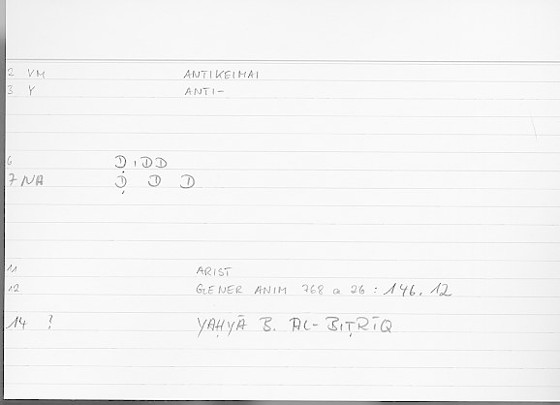 2 VM ANTIKEIMAI
3 Y ANTI-
6 Ḍ,DD
7 NA Ḍ D D
11 ARIST
12 GENER ANIM 768 a 26 : 146.12
14 ? YAḤYĀ B. AL-BIṬRĪQ